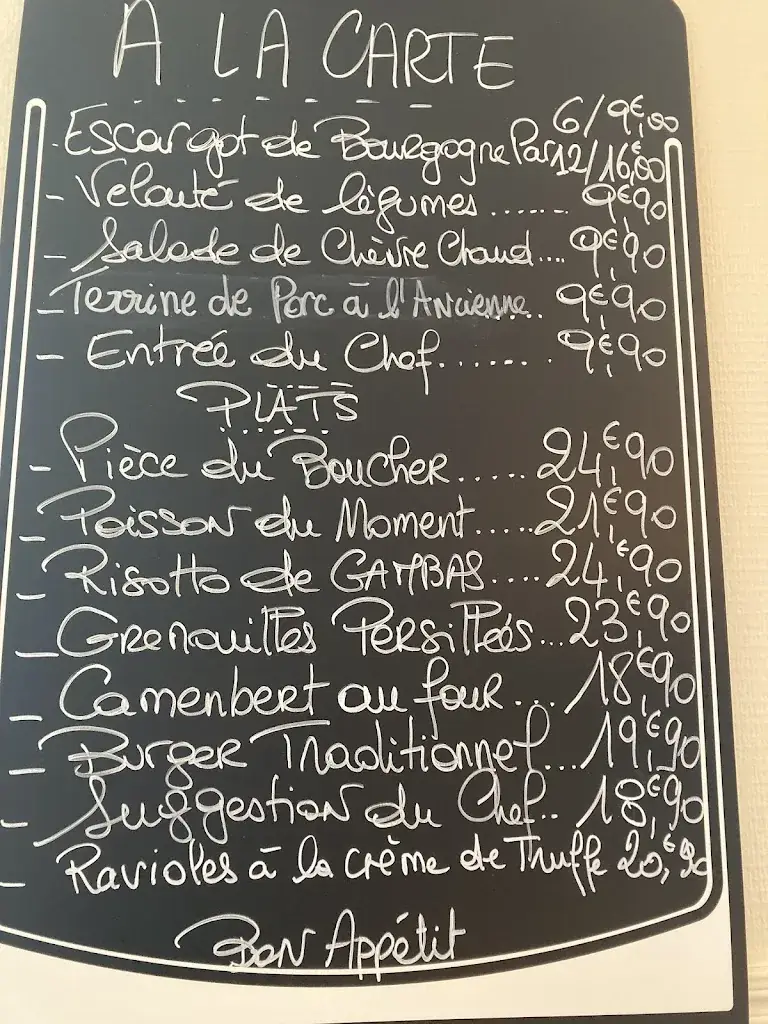 A LA CARTE
6/9€,00
- Escargot de Bourgogne Par 12/16€,00
- Velouté de légumes ...... 9€,90
- Salade de Chèvre Chaud... 9€,90
- Terrine de Porc à l'Ancienne.. 9€,90
- Entrée du Chef....... 9€,90
PLATS
- Pièce du Boucher..... 24,€90
- Poisson du Moment..... 21,€90
- Risotto de GAMBAS.... 24,€90
- Grenouilles Persillées... 23,€90
- Camenbert au four... 18,€90
- Burger Traditionnel... 19,€90
- Suggestion du Chef.. 18,€90
- Ravioles à la crème de Truffe 20,€90
Bon Appétit